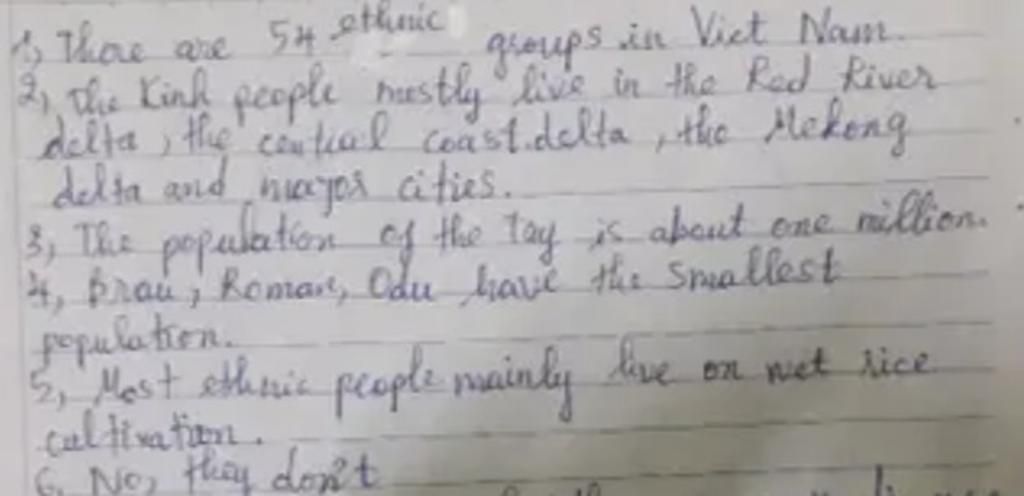 1, There are 54 ethnic groups in Viet Nam.
2, The Kinh people mostly live in the Red River
delta, the central coast.delta, the Mekong
delta and major cities.
3, The population of the Tay is about one million.
4, Brau, Roman, Odu have the smallest
population.
5, Most ethnic people mainly live on wet rice
cultivation.
6, No, they don't